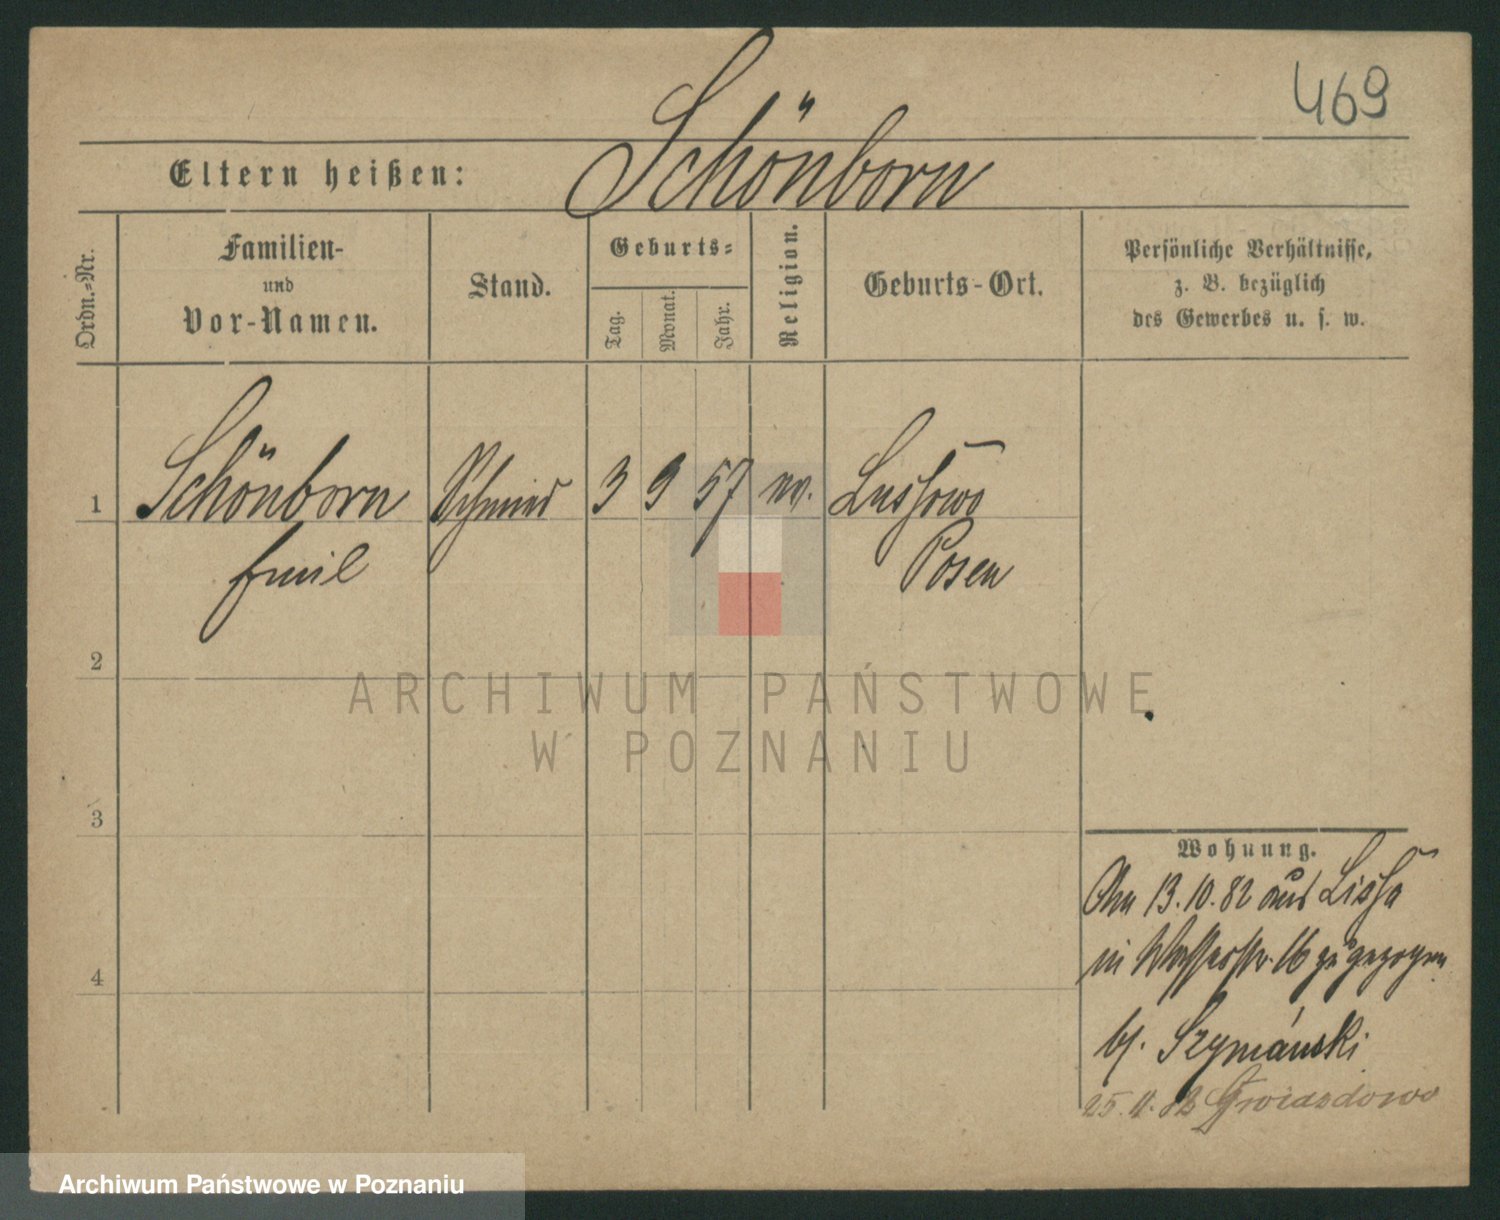 469
Schönborn
Eltern heißen:
Ordn.-Nr.
Familien- und Vor-Namen.
Stand.
Geburts-
Tag.
Monat.
Jahr.
Religion.
Geburts-Ort.
Persönliche Verhältnisse,
z. B. bezüglich
des Gewerbes u. s. w.
1 Schönborn Schmied 3 9 57 ev. Lussowo
Emil Posen
2
3
4
Wohnung.
Am 13.10.82 aus Lissa
in Wasserstr. 16 zugezogen
bei Szymánski
25.11.82 Gwiazdowo
ARCHIWUM PAŃSTWOWE
W POZNANIU
Archiwum Państwowe w Poznaniu